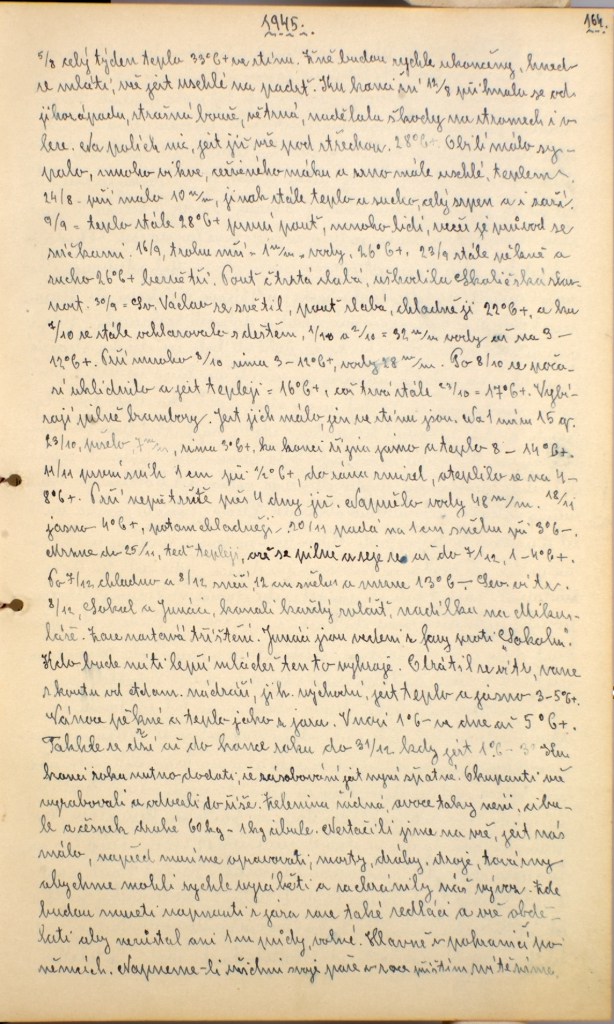 1945.
164.
5/8 celý týden teplo 33°C+ ve stínu. Žně budou rychle ukončeny, hned
se mlátí, vše jest uschlé na padrť. Ku konci žní 12/8 přihnala se od
jihozápadu, strašná bouře, větrná, nadělala škody na stromech i v
lese. Na polích nic, jest již vše pod střechou. 28°C+. Obilí málo sy-
palo, mnoho vikve, červeného máku a zrno málo uschlé, teplem.
24/8 - prší málo 10 m/m, jinak stále teplo a sucho, celý srpen a i září.
9/9 = teplo stále 28°C+ první pouť, mnoho lidí, večer je průvod se
svíčkami. 16/9, trochu prší - 1 m/m vody, 26°C+, 23/9 stále pěkně a
sucho 26°C+ bezvětří. Pouť čtvrtá slabá, uškodila Skaličská slav-
nost. 30/9 = Sv. Václav se světil, pouť slabá, chladněji 22°C+, a ku
1/10 se stále ochlazovalo s deštěm, 1/10 a 2/10 = 32 m/m vody až na 3 -
12°C+. Prší mnoho 3/10 zima 3-12°C+, vody 28 m/m. Po 8/10 se poča-
sí uklidnilo a jest tepleji = 16°C+, což trvá stále 23/10 = 17°C+. Vybí-
rají pilně brambory. Jest jich málo, jen ve stínu jsou. Na 1 mírn 15 q.
23/10, pršelo 7 m/m, zima 3°C+, ku konci října jasno a teplo 8 - 14°C+.
11/11 první sníh 1 cm při 1/2°C+, do rána zmizel, oteplilo se na 4-
8°C+. Prší nepřetržitě přes 4 dny již. Napršelo vody 48 m/m. 18/11
jasno 4°C+, potom chladněji. 20/11 padá na 1 cm sněhu při 3°C-.
Mrzne do 25/11, teď tepleji, oře se pilně a seje se až do 7/12, 1-4°C+.
Po 7/12 chladno a 8/12 sněží, 12 cm sněhu a mrzne 13°C-. Sev. vítr.
8/12, Sokol a Junáci, konali každý zvlášť, nadílku na Miku-
láše. Zase nastává tříštění. Junáci jsou vedeni z fary proti "Sokolu".
Kdo bude míti lepší mládež ten to vyhraje. Obrátil se vítr, vane
z koutu od dom. nádraží, jih. východní, jest teplo a jasno 3-5°C+.
Vánoce pěkné a teplo jako z jara. V noci 1°C- ve dne až 5°C+.
Takhle se drží až do konce roku do 31/12 kdy jest 1°C- 3° Ku
konci roku nutno dodati, že zásobování ját nyní špatné. Okupanti vše
vyrabovali a odvedli do říše. Zelenina žádná, ovoce taky není, cibu-
le a česnek drahé 60 kg - 1 kg cibule. Nestačili jsme na vše, jest nás
málo, napřed musíme opravovati, mosty, dráhy, stroje, továrny
abychme mohli rychle vyráběti a zachránily náš vývoz. Zde
budou museti napnouti z jara zase také sedláci a vše obdě-
lati aby nezůstal ani 1 m půdy, volné. Hlavně v pohraničí po
němcích. Napneme-li všichni svoje paže v roce příštím zvítězíme.